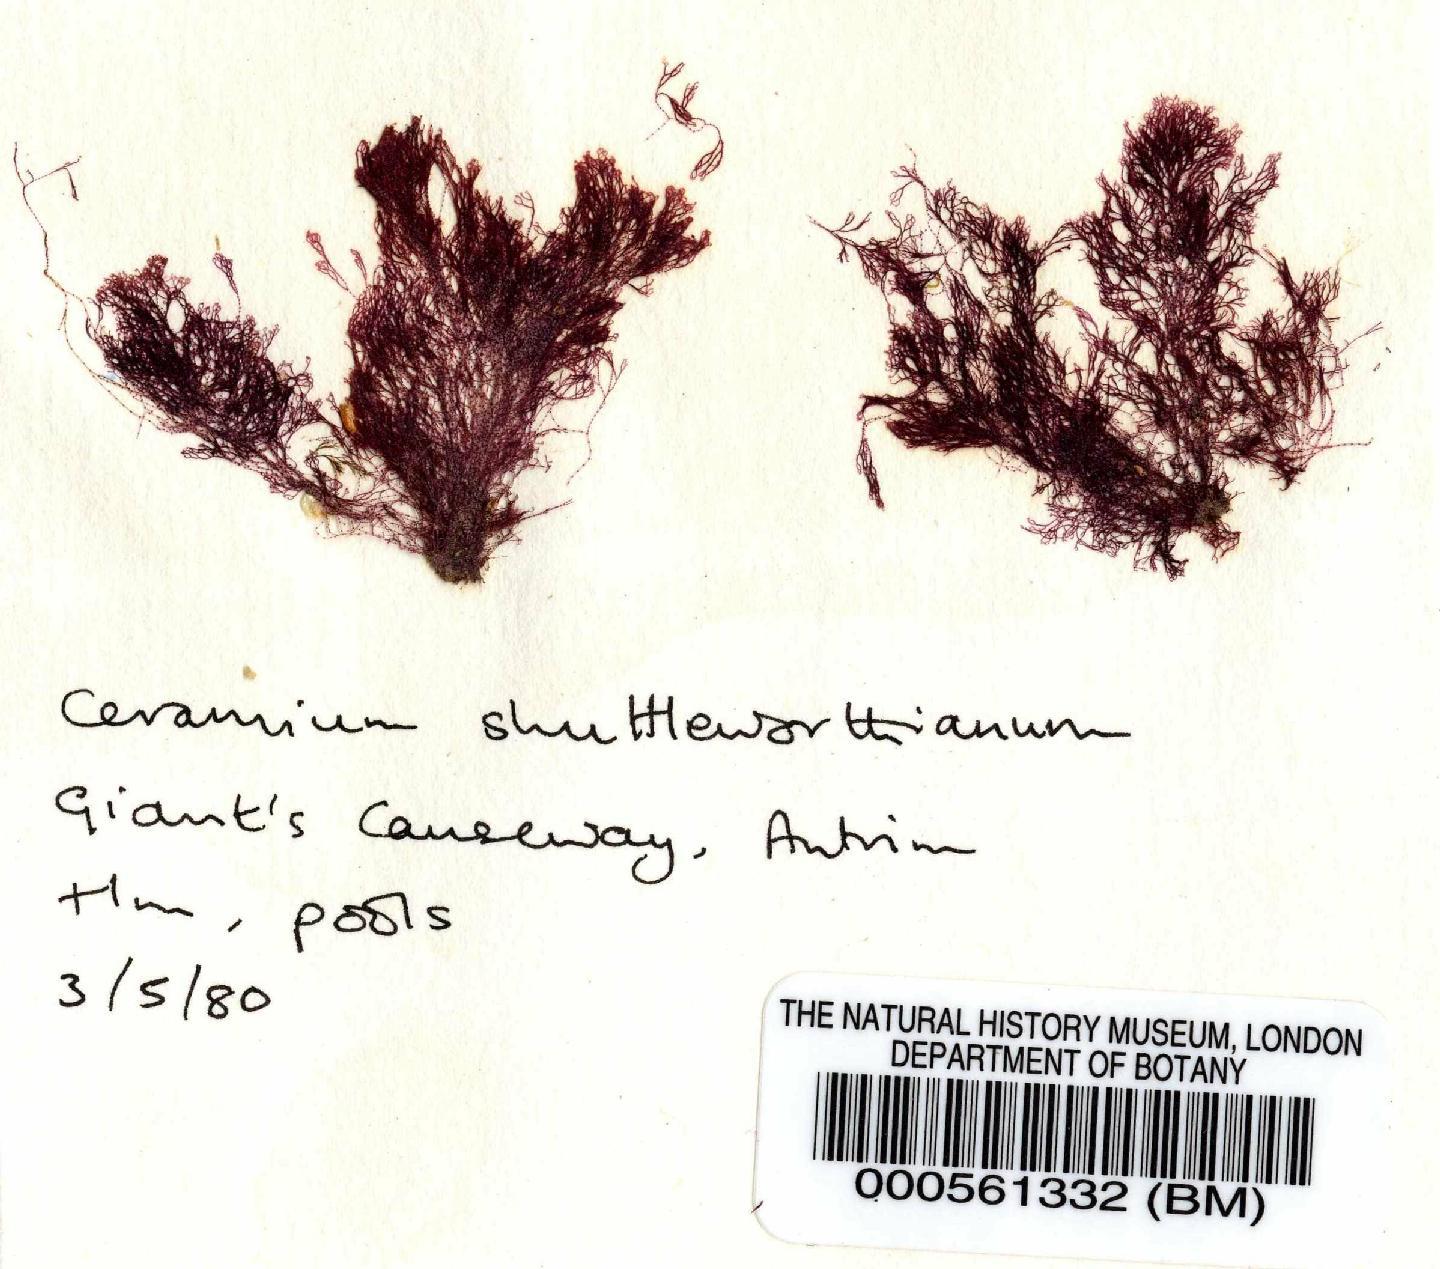 Ceramium shuttleworthianum
Giant's Causeway, Antrim
+1m, pools
3/5/80
THE NATURAL HISTORY MUSEUM, LONDON
DEPARTMENT OF BOTANY
000561332 (BM)